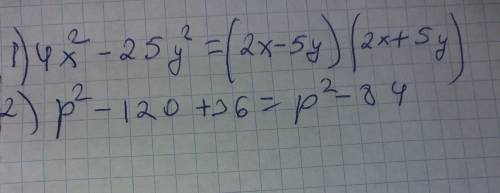 1) 4x² - 25y² = (2x - 5y) (2x + 5y)
2) p² - 120 + 36 = p² - 84